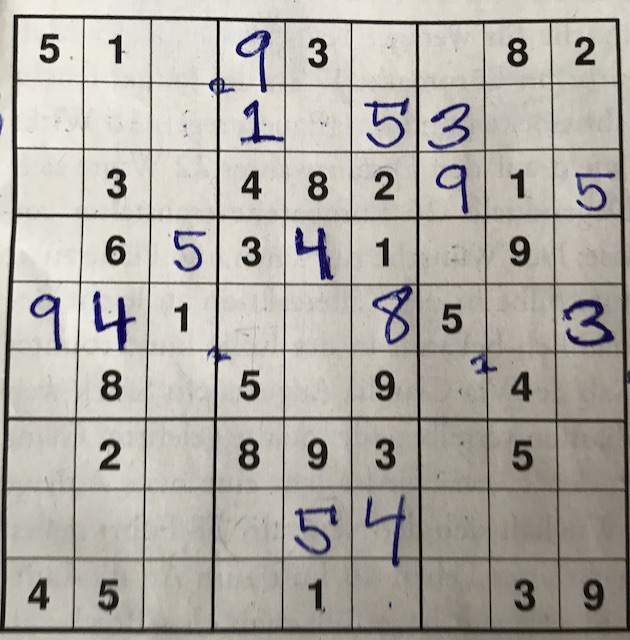 5 1 9 3 8 2
1 5 3
3 4 8 2 9 1 5
6 5 3 4 1 9
9 4 1 8 5 3
8 5 9 4
2 8 9 3 5
5 4
4 5 1 3 9